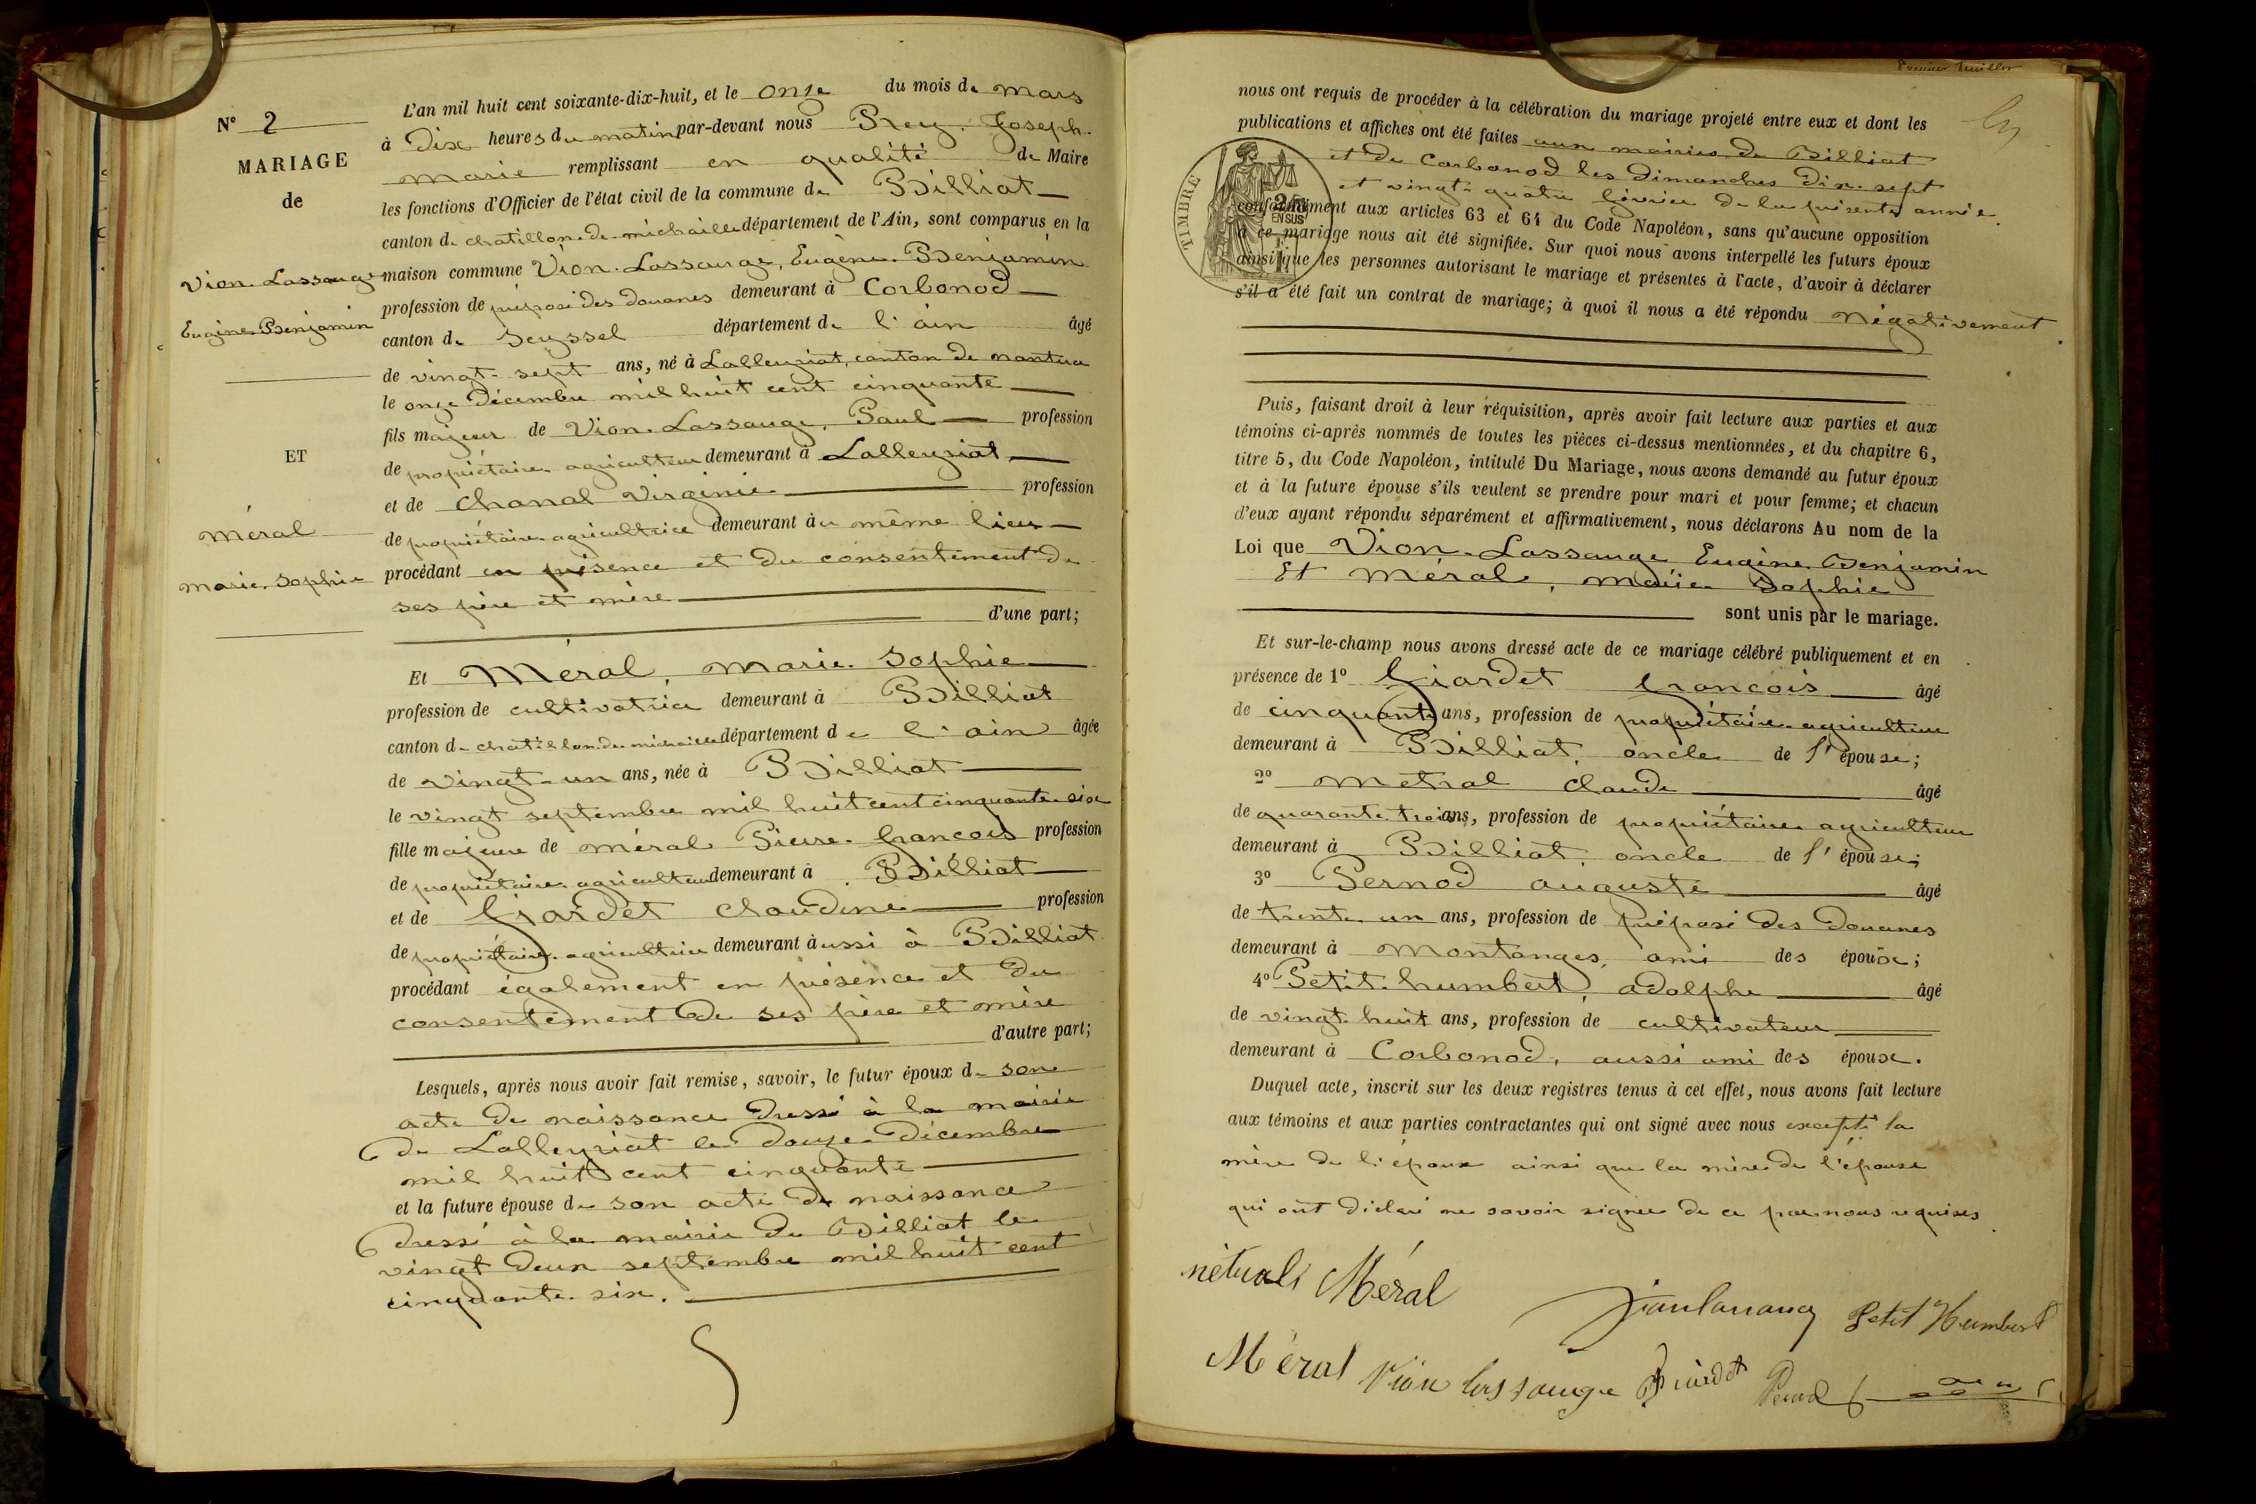 N° 2
MARIAGE
de
Vion-Lassauge
Eugène Benjamin
ET
Méral
Marie Sophie
L'an mil huit cent soixante-dix-huit, et le onze du mois de mars
à Dix heures du matin par-devant nous Prey, Joseph-
marie remplissant en qualité de Maire
les fonctions d'Officier de l'état civil de la commune de Billiat
canton de chatillon-de-michaille département de l'Ain, sont comparus en la
maison commune Vion-Lassauge, Eugène Benjamin
profession de préposé des douanes demeurant à Corbonod
canton de Seyssel département de l'ain âgé
de vingt-sept ans, né à Lalleyriat, canton de nantua
le onze Décembre mil huit cent cinquante
fils majeur de Vion-Lassauge, Paul profession
de propriétaire agriculteur demeurant à Lalleyriat
et de Chanal Virginie profession
de propriétaire agricultrice demeurant au même lieu
procédant en présence et du consentement de
ses père et mère
d'une part;
Et Méral, Marie Sophie
profession de cultivatrice demeurant à Billiat
canton de chatillon-de-michaille département de l'ain âgée
de vingt-un ans, née à Billiat
le vingt septembre mil huit cent cinquante-six
fille majeure de Méral Pierre-François profession
de propriétaire agriculteur demeurant à Billiat
et de Girardet Claudine profession
de propriétaire agricultrice demeurant aussi à Billiat
procédant également en présence et du
consentement de ses père et mère
d'autre part;
Lesquels, après nous avoir fait remise, savoir, le futur époux de son
acte de naissance dressé à la mairie
de Lalleyriat le Douze Décembre
mil huit cent cinquante
et la future épouse de son acte de naissance
dressé à la mairie de Billiat le
vingt deux septembre mil huit cent
cinquante six.
nous ont requis de procéder à la célébration du mariage projeté entre eux et dont les
publications et affiches ont été faites aux mairies de Billiat
et de Corbonod les dimanches dix-sept
et vingt-quatre février de la présente année
conformément aux articles 63 et 64 du Code Napoléon, sans qu'aucune opposition
à ce mariage nous ait été signifiée. Sur quoi nous avons interpellé les futurs époux
ainsi que les personnes autorisant le mariage et présentes à l'acte, d'avoir à déclarer
s'il a été fait un contrat de mariage; à quoi il nous a été répondu négativement
TIMBRE
EN SUS
Puis, faisant droit à leur réquisition, après avoir fait lecture aux parties et aux
témoins ci-après nommés de toutes les pièces ci-dessus mentionnées, et du chapitre 6,
titre 5, du Code Napoléon, intitulé Du Mariage, nous avons demandé au futur époux
et à la future épouse s'ils veulent se prendre pour mari et pour femme; et chacun
d'eux ayant répondu séparément et affirmativement, nous déclarons Au nom de la
Loi que Vion-Lassauge Eugène Benjamin
Et Méral, Marie Sophie
sont unis par le mariage.
Et sur-le-champ nous avons dressé acte de ce mariage célébré publiquement et en
présence de 1° Girardet François âgé
de cinquante ans, profession de propriétaire agriculteur
demeurant à Billiat, oncle de l'épouse;
2° Métral Claude âgé
de quarante-trois ans, profession de propriétaire agriculteur
demeurant à Billiat, oncle de l'épouse;
3° Pernod auguste âgé
de trente-un ans, profession de préposé des douanes
demeurant à Montanges, ami des époux;
4° Petit-humbert, adolphe âgé
de vingt-huit ans, profession de cultivateur
demeurant à Corbonod, aussi ami des époux.
Duquel acte, inscrit sur les deux registres tenus à cet effet, nous avons fait lecture
aux témoins et aux parties contractantes qui ont signé avec nous excepté la
mère de l'époux ainsi que la mère de l'épouse
qui ont déclaré ne savoir signer de ce par nous requises
Méral
Petit Humbert
Méral Vion lassauge